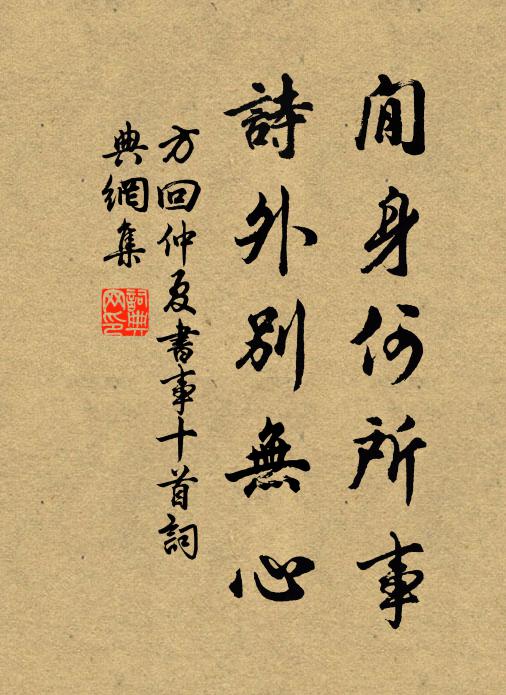 閒身何所事
詩外別無心
方回仲夏書事十首詞
典網集
詞典網印